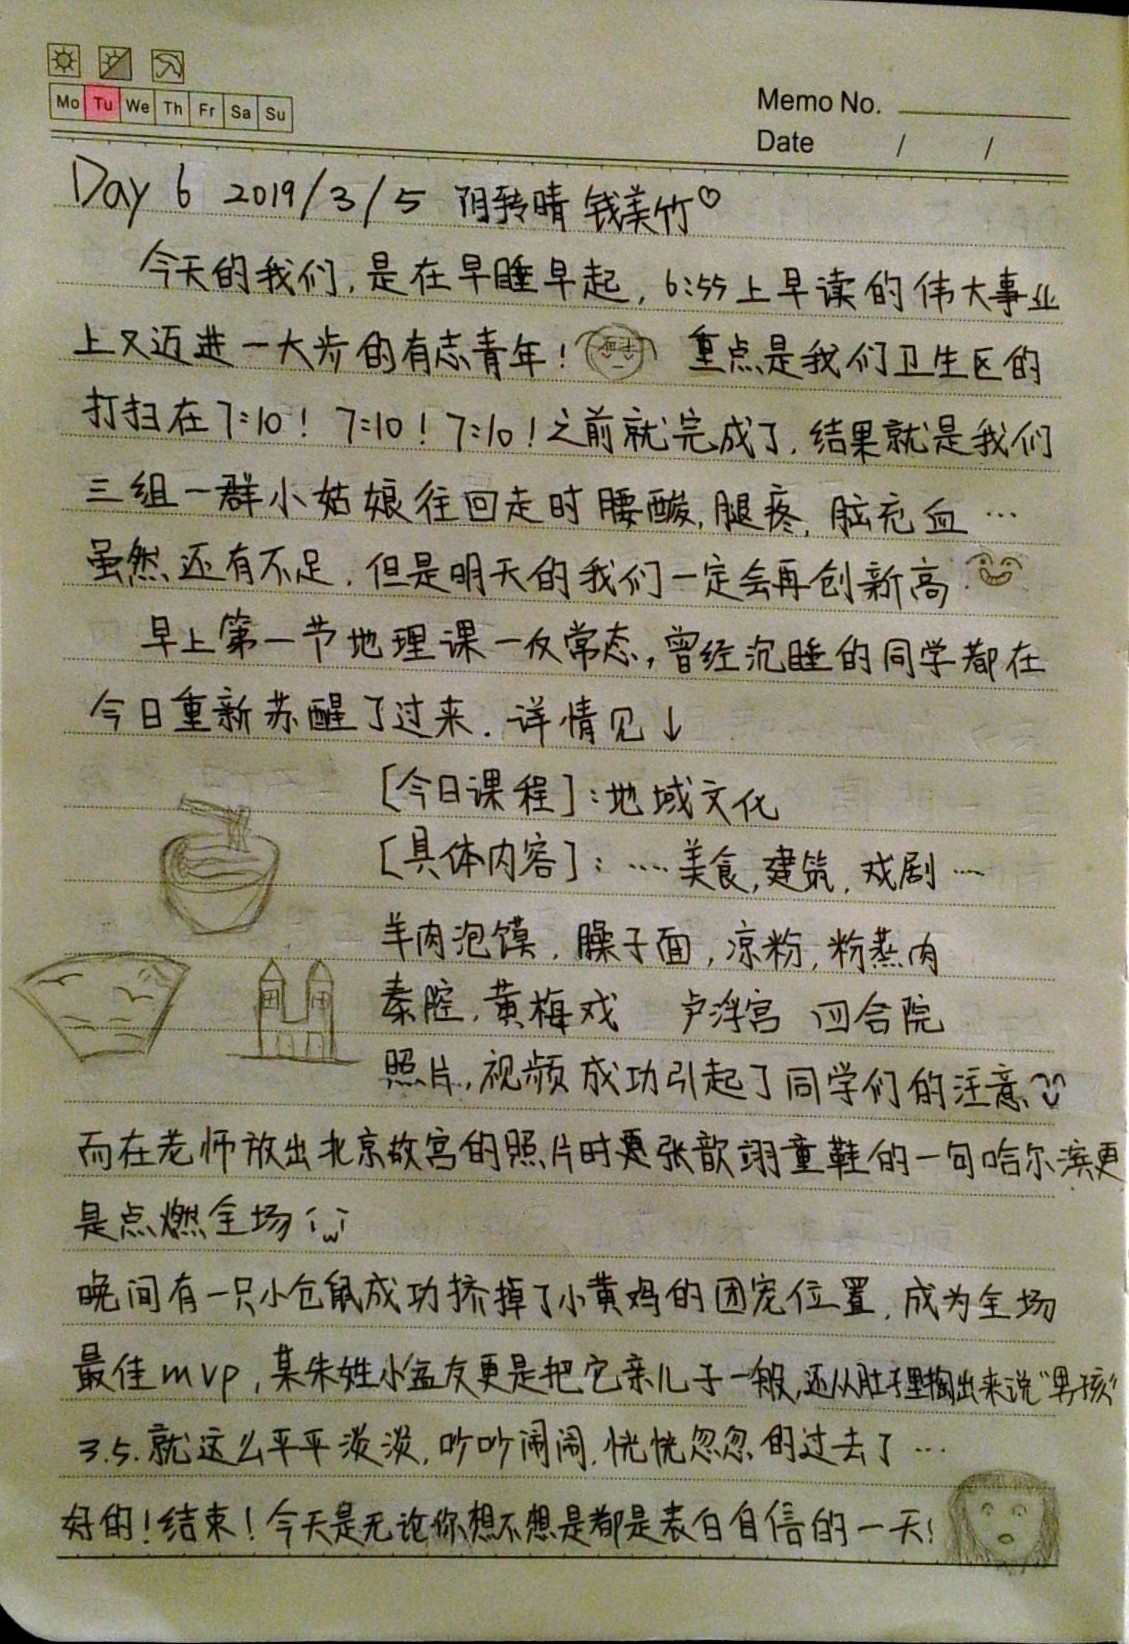 Mo Tu We Th Fr Sa Su
Memo No.
Date / /
Day 6 2019/3/5 阴转晴 钱美竹♡
今天的我们,是在早睡早起,6:55上早读的伟大事业
上又迈进一大步的有志青年! 重点是我们卫生区的
打扫在7:10! 7:10! 7:10!之前就完成了,结果就是我们
三组一群小姑娘往回走时腰酸,腿疼,脑充血…
虽然还有不足,但是明天的我们一定会再创新高
早上第一节地理课一反常态,曾经沉睡的同学都在
今日重新苏醒了过来.详情见↓
[今日课程]:地域文化
[具体内容]:……美食,建筑,戏剧……
羊肉泡馍,臊子面,凉粉,粉蒸肉
秦腔,黄梅戏 卢浮宫 四合院
照片,视频成功引起了同学们的注意
而在老师放出北京故宫的照片时更张歆翊童鞋的一句哈尔滨更
是点燃全场
晚间有一只小仓鼠成功挤掉了小黄鸡的团宠位置,成为全场
最佳mvp,某朱姓小盆友更是把它亲儿子一般,还从肚子里掏出来说“男孩”
3.5.就这么平平淡淡,吵吵闹闹,恍恍忽忽的过去了…
好的!结束!今天是无论你想不想是都是表白自信的一天!